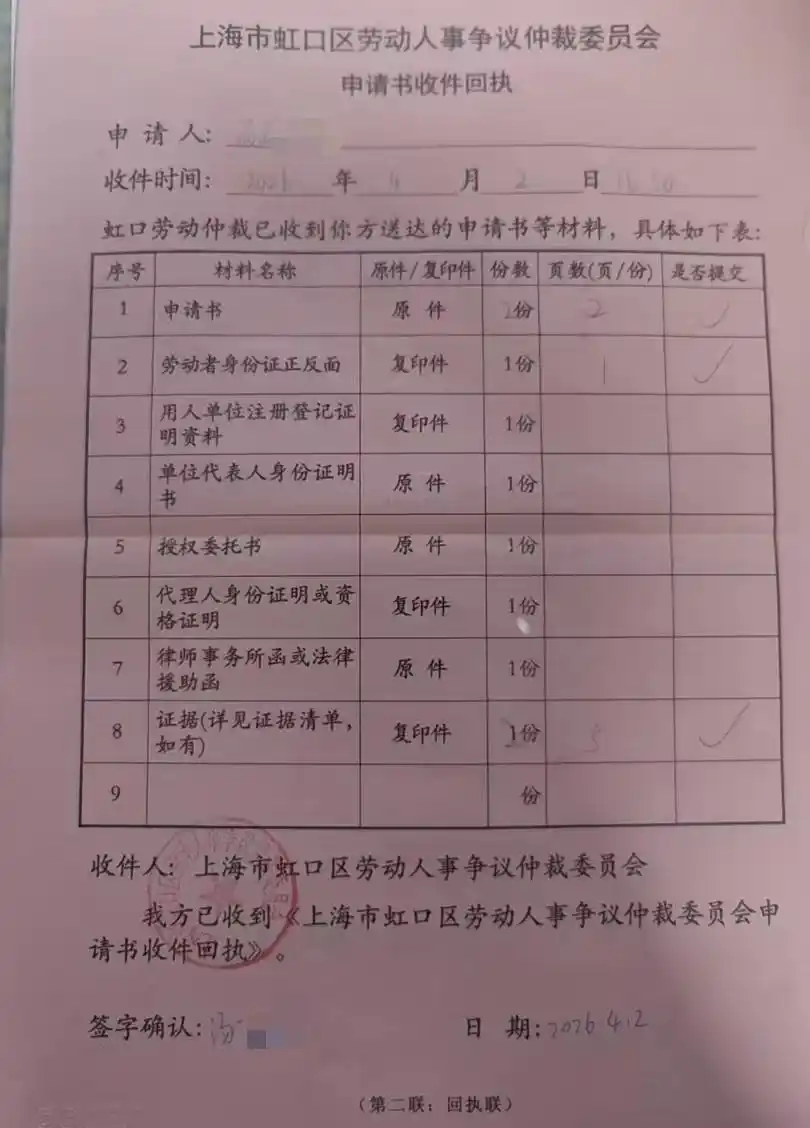 上海市虹口区劳动人事争议仲裁委员会
申请书收件回执
申 请 人:
收件时间: 2026 年 4 月 2 日
虹口劳动仲裁已收到你方送达的申请书等材料，具体如下表:
序号 材料名称 原件/复印件 份数 页数(页/份) 是否提交
1 申请书 原 件 2份 2 ✓
2 劳动者身份证正反面 复印件 1份 1 ✓
3 用人单位注册登记证
明资料 复印件 1份
4 单位代表人身份证明
书 原 件 1份
5 授权委托书 原 件 1份
6 代理人身份证明或资
格证明 复印件 1份
7 律师事务所函或法律
援助函 原 件 1份
8 证据(详见证据清单，
如有) 复印件 1份 5 ✓
9 份
收件人: 上海市虹口区劳动人事争议仲裁委员会
我方已收到《上海市虹口区劳动人事争议仲裁委员会申
请书收件回执》。
签字确认: 汤 日 期: 2026.4.2
(第二联: 回执联)